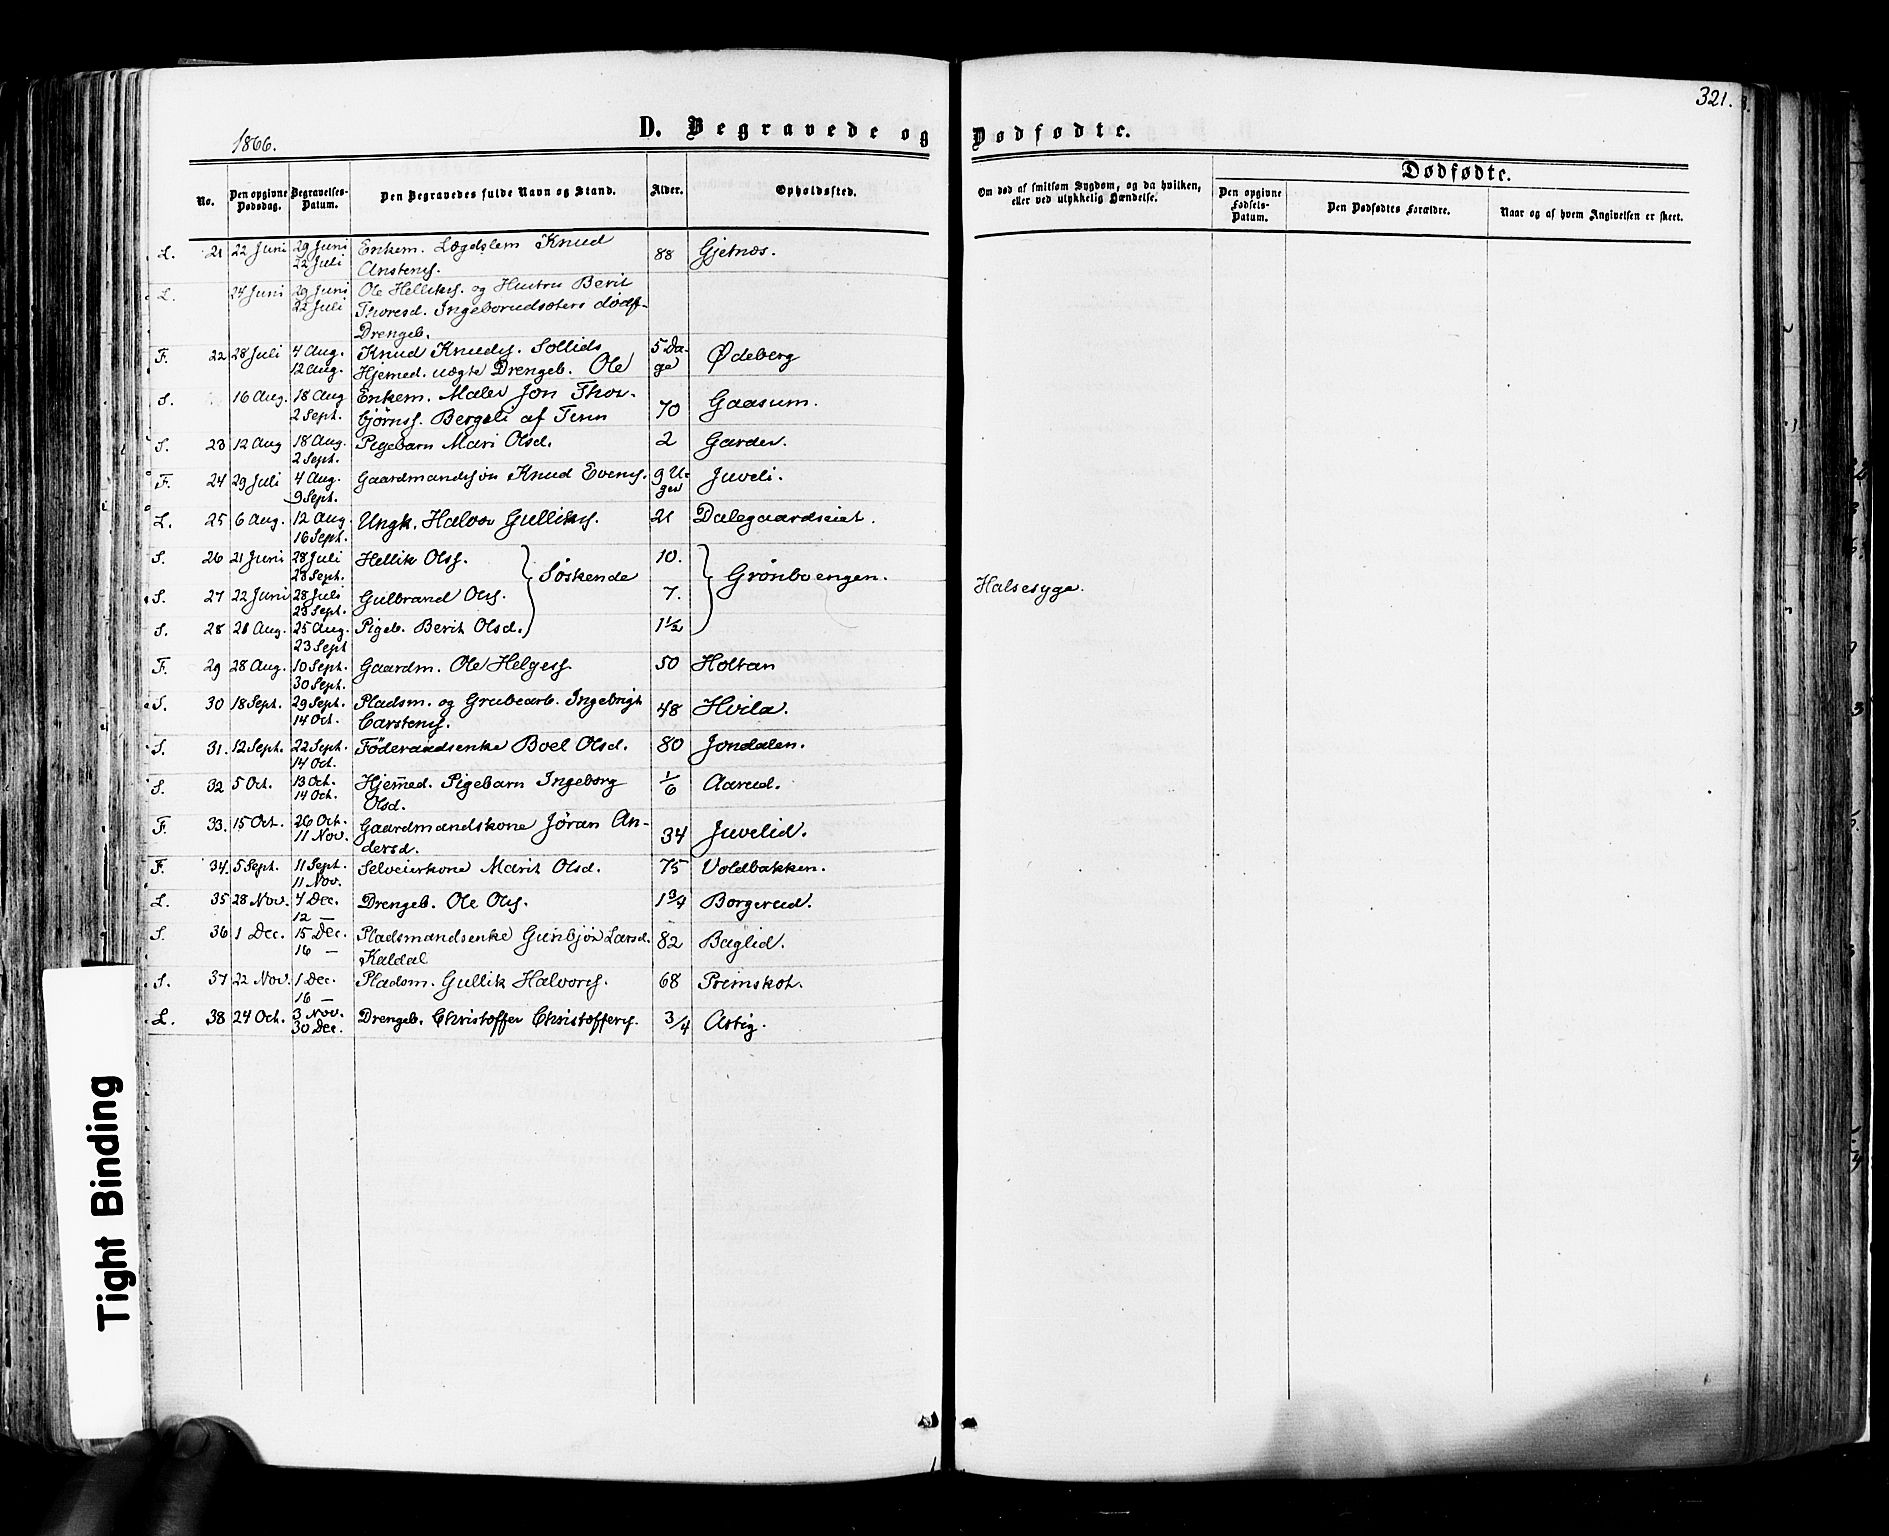 321.
1866.
D. Begravede og Dødfødte.
No. Den opgivne Dødsdag. Begravelses-Datum. Den Begravedes fulde Navn og Stand. Alder. Opholdssted. Om død af smitsom Sygdom, og da hvilken, eller ved ulykkelig Hændelse. Dødfødte. Den opgivne Fødsels-Datum. Den Dødfødtes Forældre. Naar og af hvem Angivelsen er skeet.
L. 21 22 Juni 29 Juni Enkem. Lægdslem Knud 88 Gjetnæs.
22 Juli Anstens.
L. 24 Juni 29 Juni Ole Helliks. og Hustru Berit
22 Juli Thoresd. Ingeborudsæters dødf.
Drengeb.
F. 22 28 Juli 4 Aug. Knud Knuds. Sollids 5 Da- Ødeberg
12 Aug. Hjemmed. uægte Drengeb. Ole ge
S. 16 Aug. 18 Aug Enkem. Maler Jon Thor- 70 Gaasum.
2 Sept. bjørns. Bergsli af Tinn
S. 23 12 Aug 18 Aug. Pigebarn Mari Olsd. 2 Garder.
2 Sept.
F. 24 29 Juli 4 Aug. Gaardmandssøn Knud Evens. 9 U- Juveli.
9 Sept. ger
L. 25 6 Aug. 12 Aug. Ungk. Halvor Gulliks. 21 Dalegaardseiet.
16 Sept.
S. 26 21 Juni 28 Juli Hellik Ols. 10.
23 Sept. Søskende Grønboengen.
S. 27 22 Juni 28 Juli Gulbrand Ols. 7. Halsesyge.
23 Sept.
S. 28 21 Aug. 25 Aug. Pigeb. Berit Olsd. 1½
23 Sept
F. 29 28 Aug. 10 Sept. Gaardm. Ole Helges. 50 Holtan
30 Sept.
S. 30 18 Sept. 29 Sept. Pladsm. og Grubearb. Ingebrigt 48 Hvila.
14 Oct. Carstens.
S. 31. 12 Sept. 22 Sept. Føderaadsenke Boel Olsd. 80 Jondalen.
14 Oct.
S. 32 5 Oct. 13 Oct. Hjemmed. Pigebarn Ingeborg 1/6 Aarud.
14 Oct. Olsd.
F. 33. 15 Oct. 26 Oct. Gaardmandskone Jøran An- 34 Juvelid.
11 Nov. dersd.
F. 34. 5 Sept. 11 Sept. Selveierkone Marit Olsd. 75 Voldbakken.
11 Nov.
L. 35 28 Nov. 4 Dec. Drengeb. Ole Ols. 1¾ Borgerud.
12 —
S. 36 1 Dec. 15 Dec. Pladsmandsenke Gunbjør Larsd. 82 Baglid.
16 — Kaldal
S. 37 22 Nov. 1 Dec. Pladsm. Gullik Halvors. 68 Premskot.
16 —
L. 38 24 Oct. 3 Nov. Drengeb. Christoffer Christoffers. 3/4
30 Dec.
Tight Binding